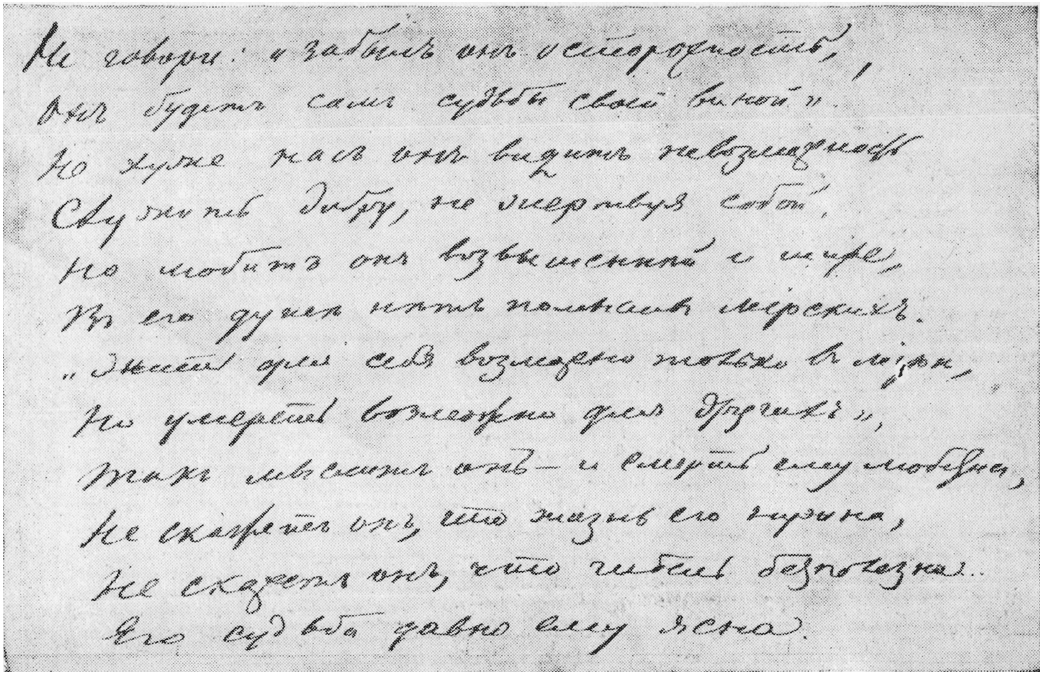 Не говори: „забылъ онъ осторожность,
Онъ будетъ самъ судьбы своей виной“.
Не хуже насъ онъ видитъ невозможность
Служить добру, не жертвуя собой.
Но любитъ онъ возвышеннѣй и шире,
Въ его душѣ нѣтъ помысловъ мірскихъ.
„Жить для себя возможно только въ мірѣ,
Но умереть возможно для другихъ“,
Такъ мыслитъ онъ – и смерть ему любезна,
Не скажетъ онъ, что жизнь его нужна,
Не скажетъ онъ, что гибель безполезна..
Его судьба давно ему ясна.